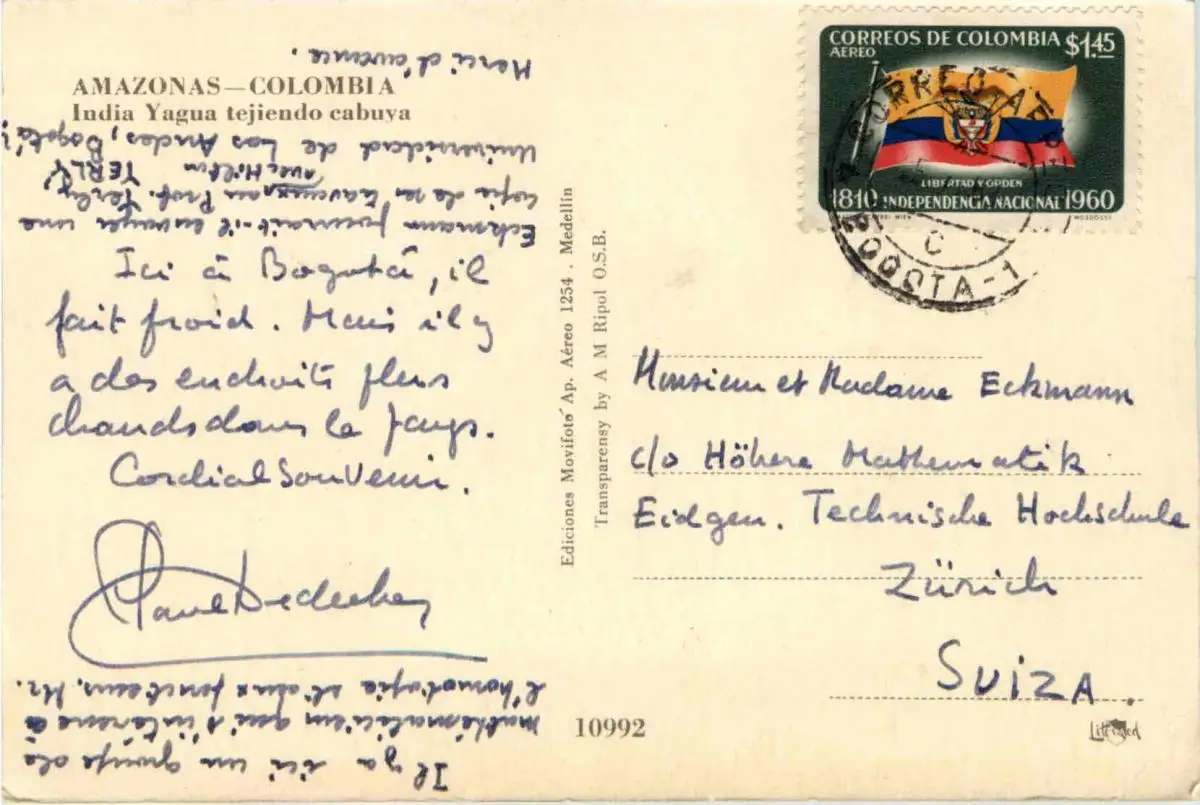 AMAZONAS—COLOMBIA
India Yagua tejiendo cabuya
Ici à Bogotá, il
fait froid. Mais il y
a des endroits plus
chauds dans le pays.
Cordial Souvenir.
Paul Dedecker
Il y a ici un groupe de
mathématiciens qui s'intéresse à
l'homotopie et aux foncteurs. Mr.
Eckmann pourrait-il envoyer une
copie de ses travaux au Prof. Yerly,
avec Hilton YERLY
Universidad de Los Andes, Bogotá?
Merci d'avance.
Ediciones Movifoto Ap. Aéreo 1254 . Medellín
Transparensy by A M Ripol O.S.B.
10992
CORREOS DE COLOMBIA
AEREO
$1.45
LIBERTAD Y ORDEN
1810 INDEPENDENCIA NACIONAL 1960
CORREO
C
BOGOTA-1
Monsieur et Madame Eckmann
c/o Höhere Mathematik
Eidgen. Technische Hochschule
Zürich
SUIZA.